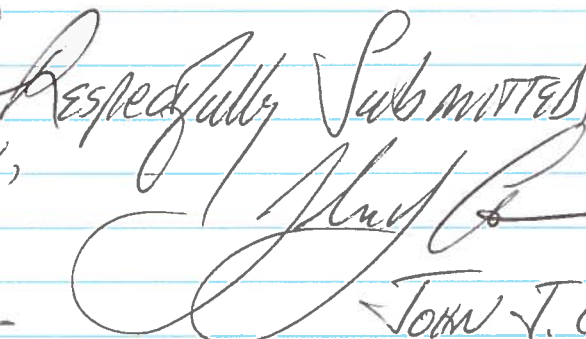 Respectfully Submitted,
,
John J.